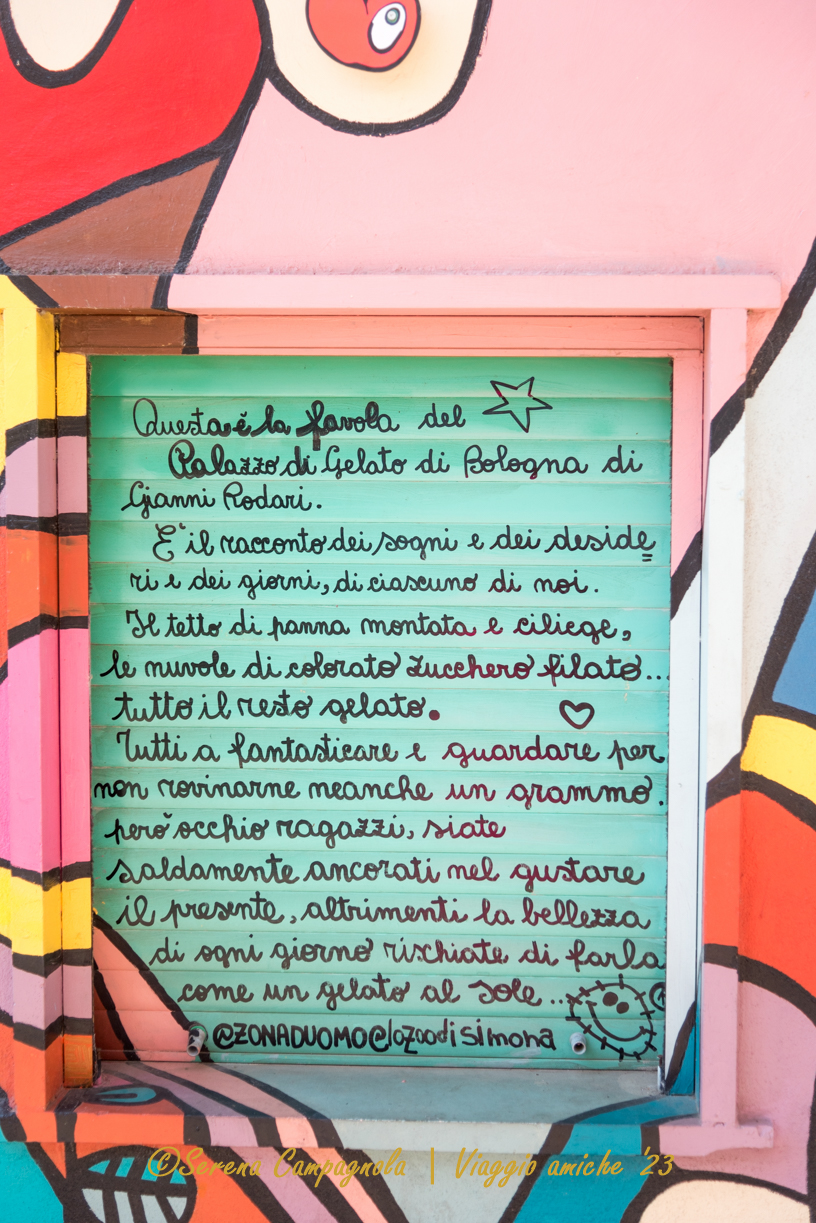 Questa è la favola del
Palazzo di Gelato di Bologna di
Gianni Rodari.
E' il racconto dei sogni e dei deside
ri e dei giorni, di ciascuno di noi.
Il tetto di panna montata e ciliege,
le nuvole di colorato zucchero filato...
tutto il resto gelato.
Tutti a fantasticare e guardare per
non rovinarne neanche un grammo.
però occhio ragazzi, siate
saldamente ancorati nel gustare
il presente, altrimenti la bellezza
di ogni giorno rischiate di farla
come un gelato al sole...
@ZONADUOMO@lozoodisimona
©Serena Campagnola | Viaggio amiche '23